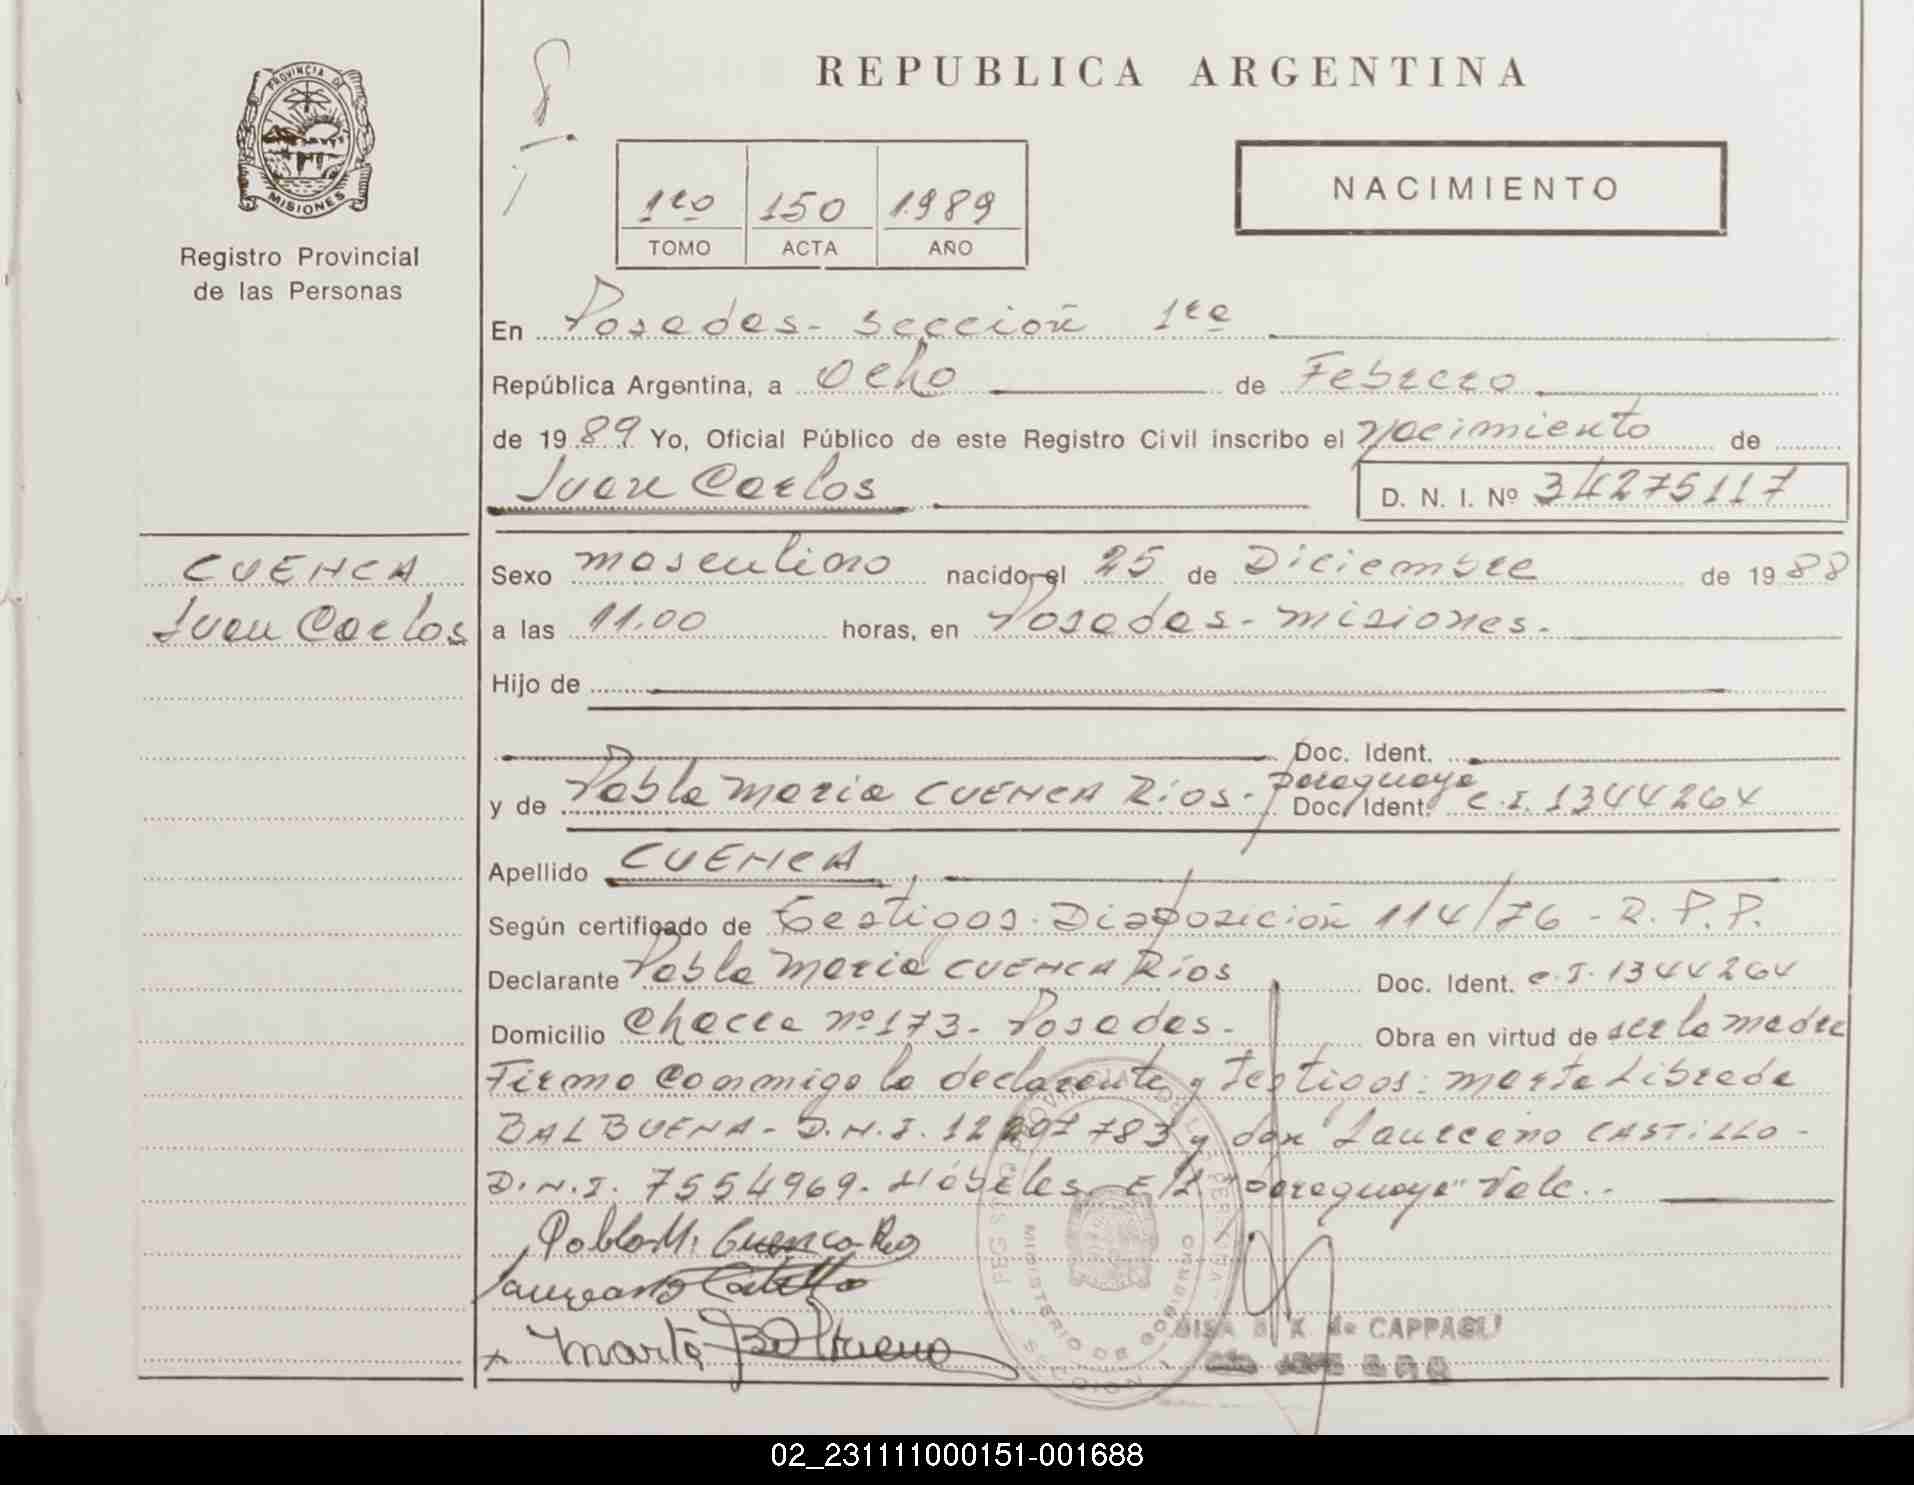 REPUBLICA ARGENTINA
PROVINCIA DE
MISIONES
Registro Provincial
de las Personas
1ro 150 1989
TOMO ACTA AÑO
NACIMIENTO
En Posadas - Sección 1ra
República Argentina, a Ocho de Febrero
de 1989 Yo, Oficial Público de este Registro Civil inscribo el Nacimiento de
Juan Carlos D. N. I. Nº 34275117
CUENCA
Juan Carlos
Sexo masculino nacido el 25 de Diciembre de 1988
a las 11.00 horas, en Posadas - Misiones.
Hijo de
Doc. Ident.
y de Pabla Maria CUENCA Ríos - paraguaya Doc. Ident. C.I. 1344264
Apellido CUENCA
Según certificado de Testigos. Disposición 114/76 - R. P. P.
Declarante Pabla Maria CUENCA Ríos Doc. Ident. C.I. 1344264
Domicilio Chacra nº 173 - Posadas - Obra en virtud de ser la madre
Firma conmigo la declarante y testigos: Marta Librada
BALBUENA - D.N.I. 12 297 783 y don Laureano CASTILLO -
D.N.I. 7554969. Hábiles. E/L "paraguaya" Vale.
Pabla M. Cuenca Rios
Laureano Castillo
Marta Balbuena
MINISTERIO DE GOBIERNO
SECCION
de CAPPAGLI
02_231111000151-001688